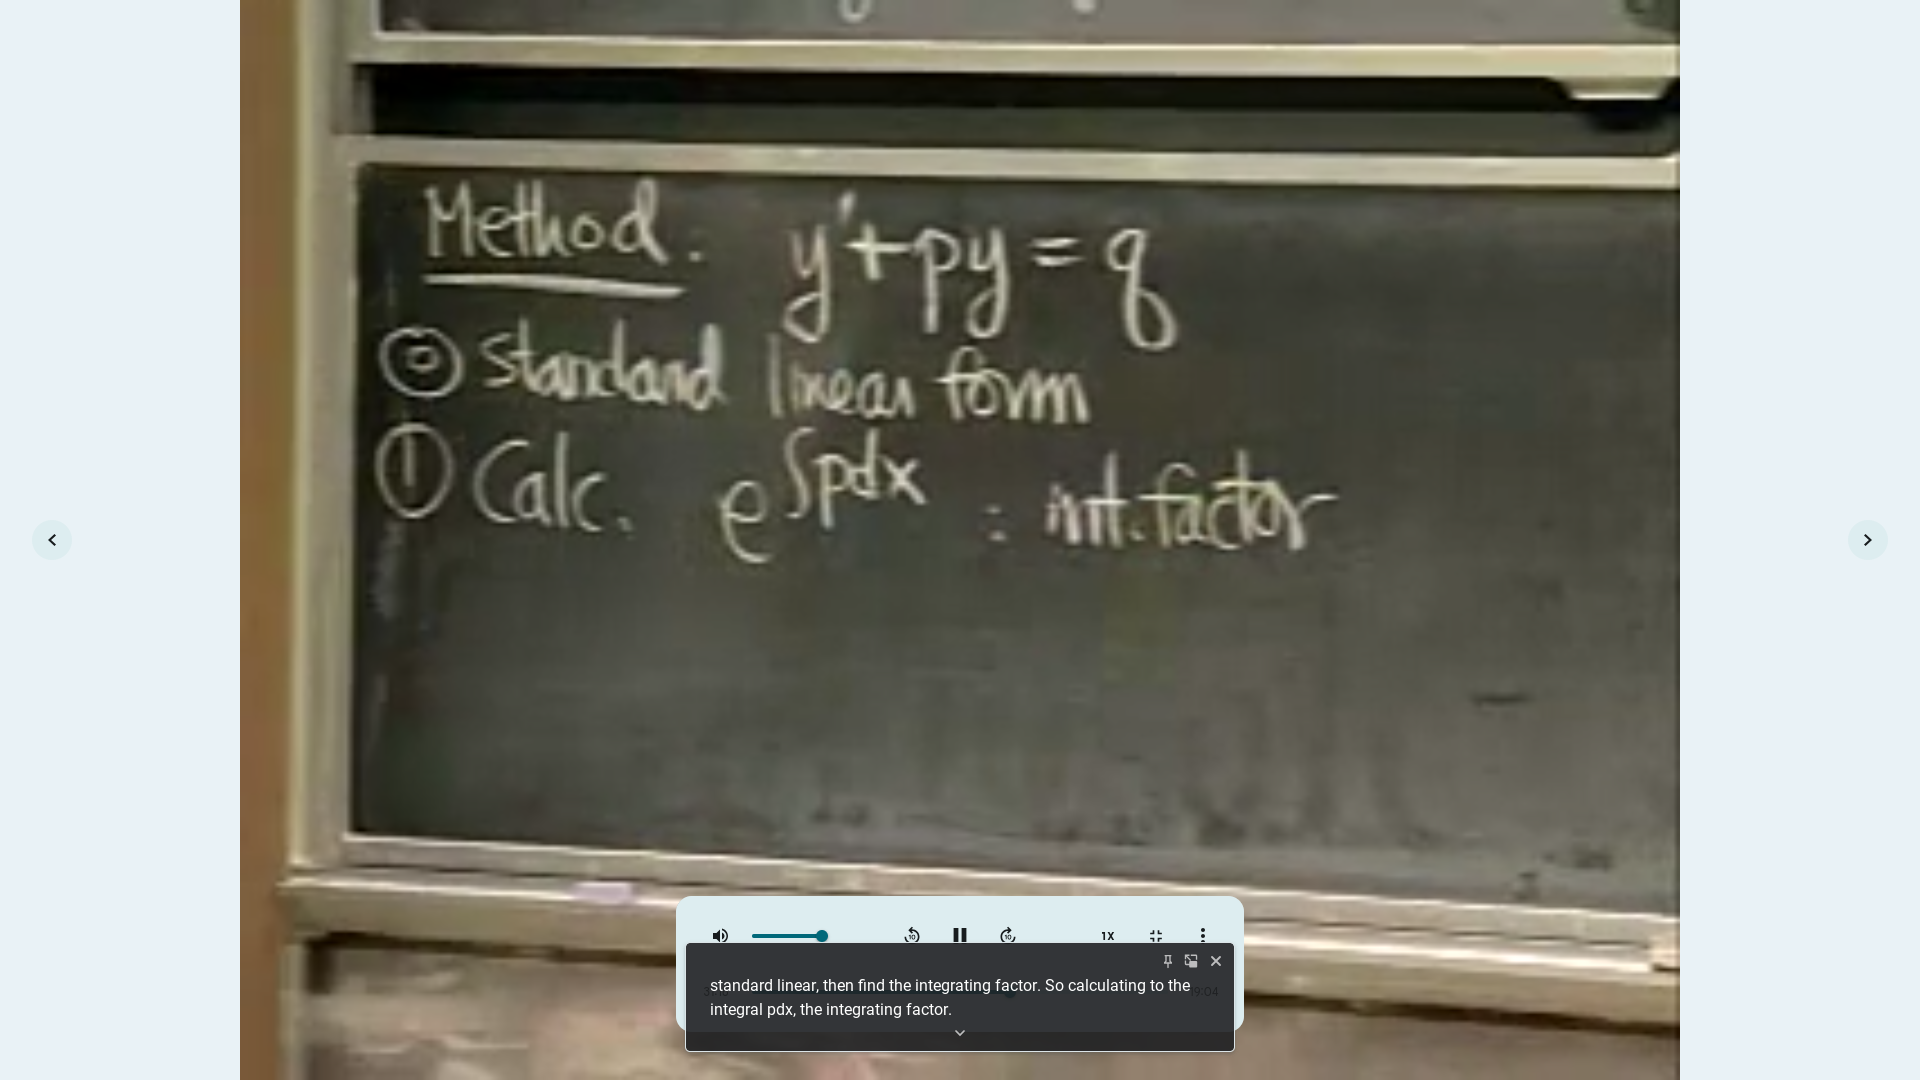 Method. y' + py = q
⓪ Standard linear form
① Calc. e^∫pdx : int. factor
1X
standard linear, then find the integrating factor. So calculating to the
integral pdx, the integrating factor.